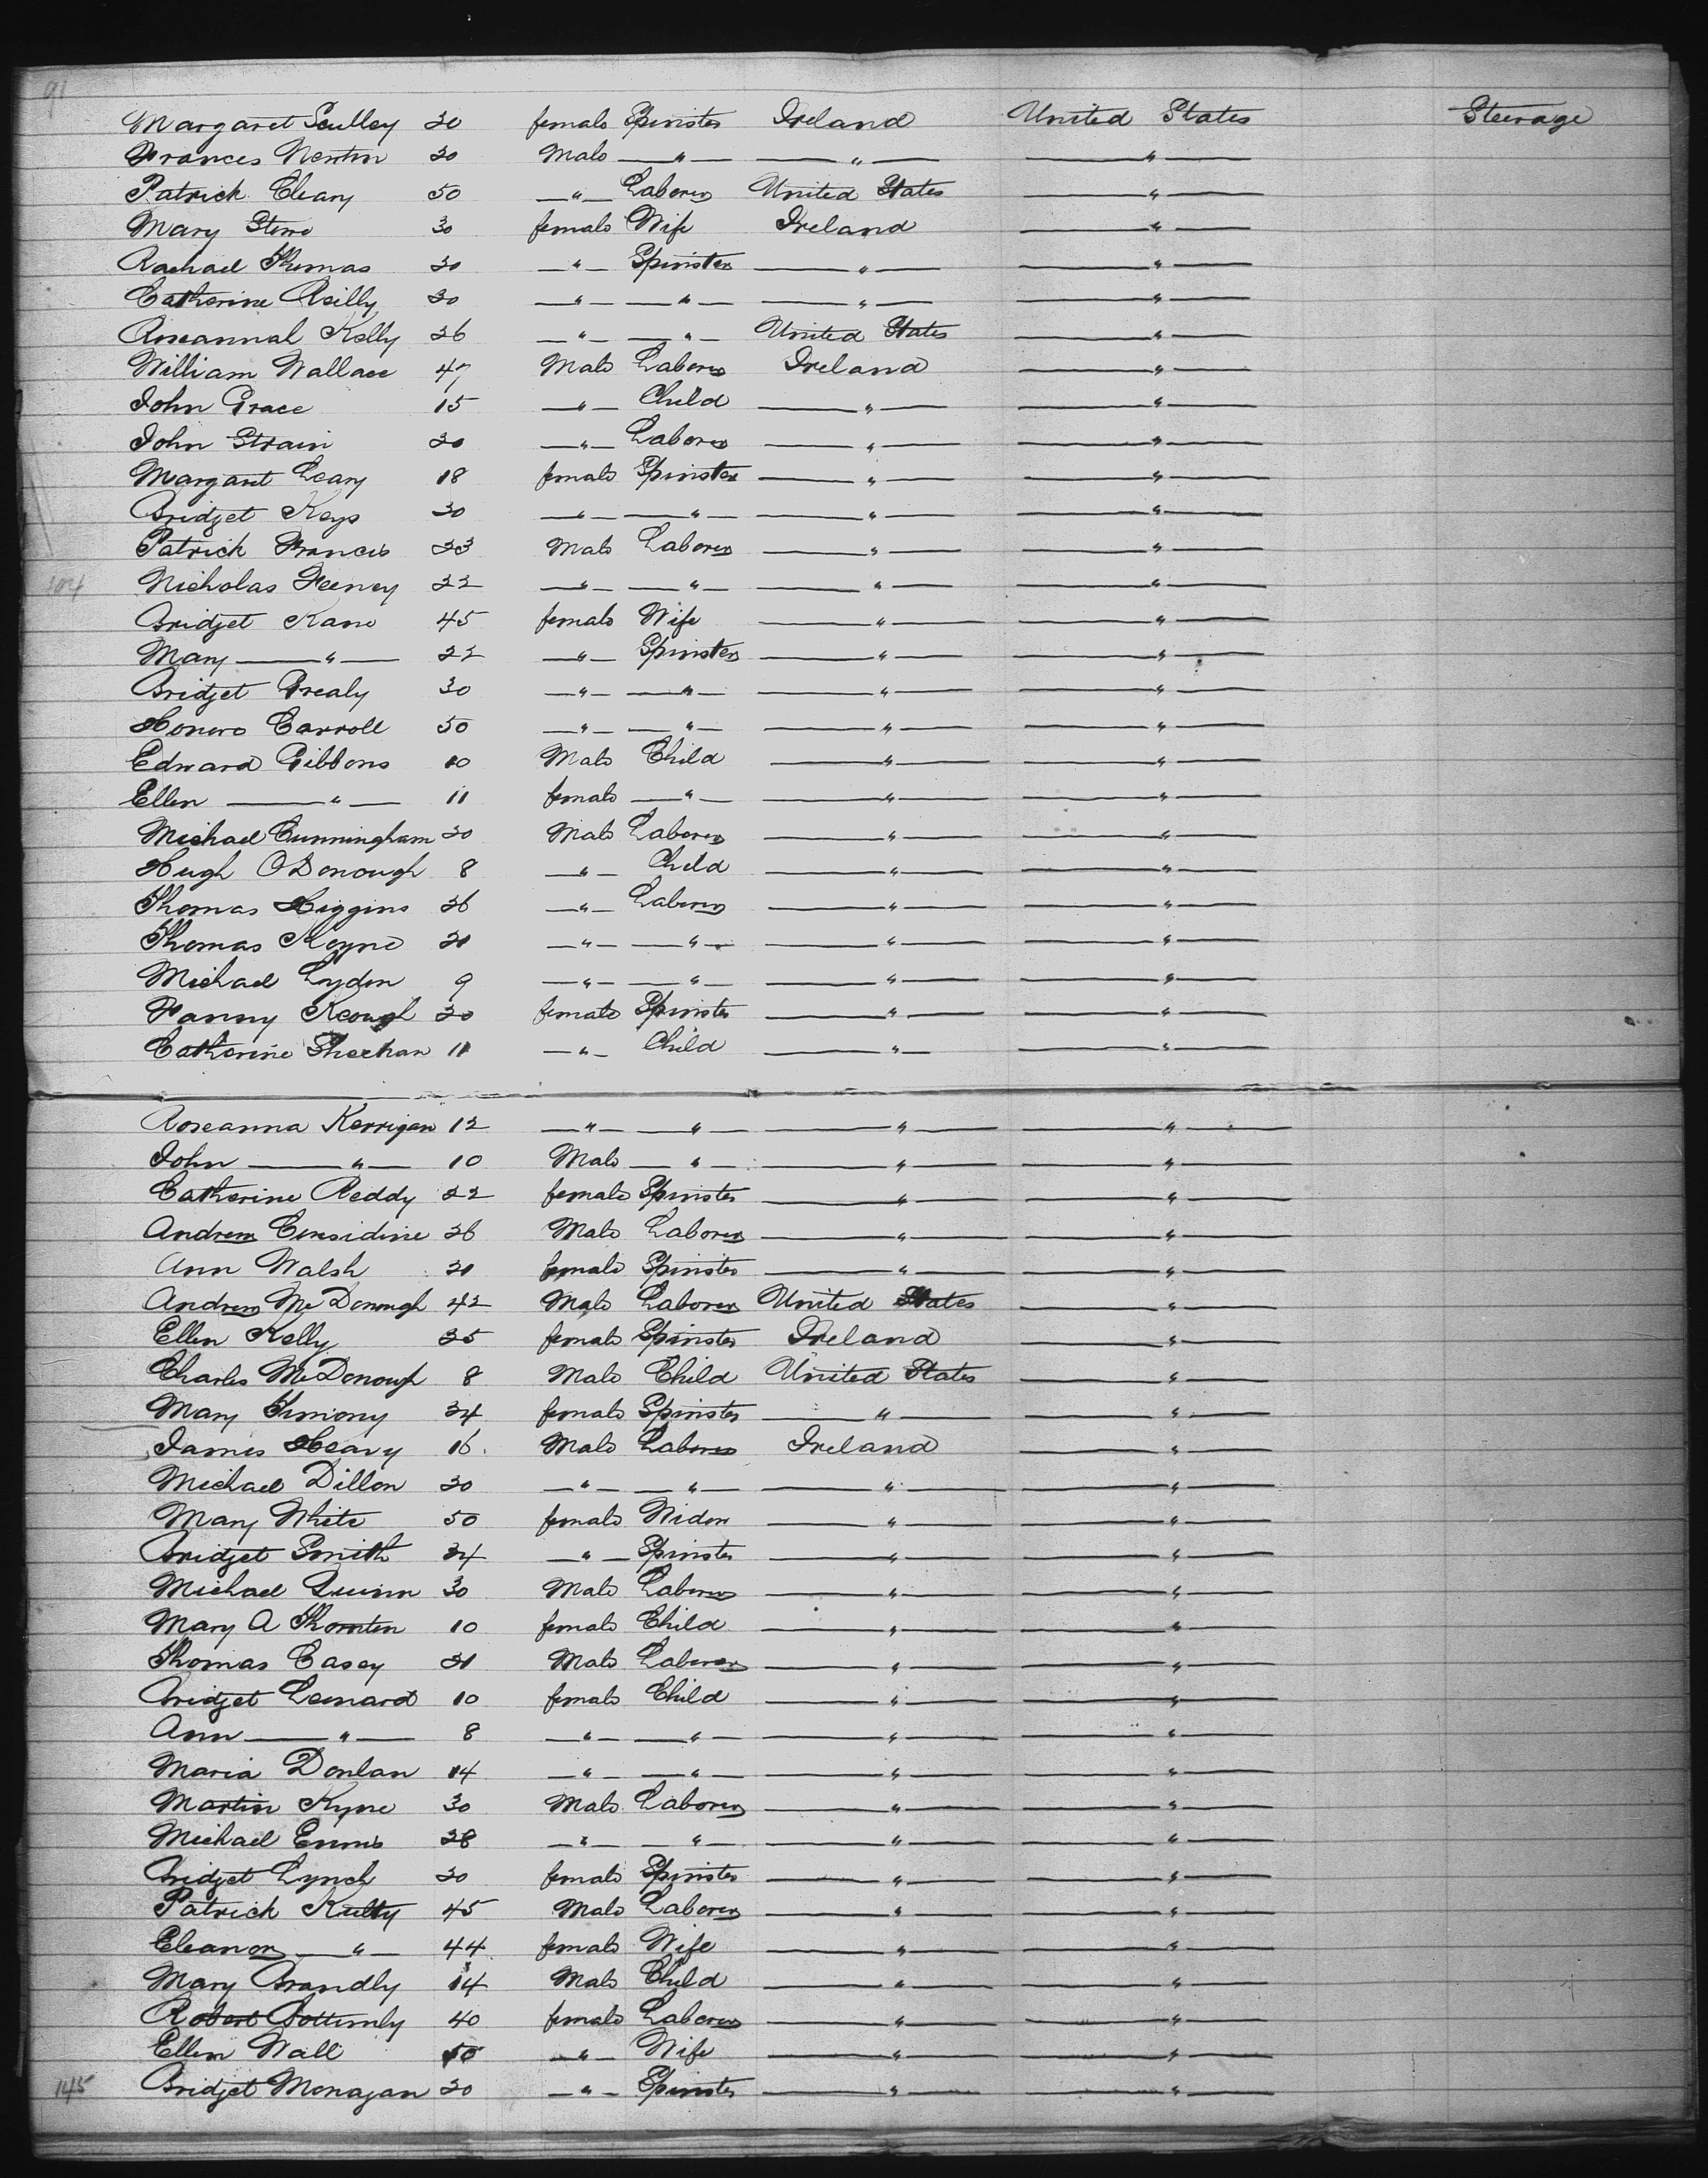 91
Margaret Sculley 20 female Spinster Ireland United States Steerage
Frances Newton 20 Male —"— —"— —"—
Patrick Cleary 50 —"— Laborer United States —"—
Mary Stone 30 female Wife Ireland —"—
Rachael Thomas 20 —"— Spinster —"— —"—
Catherine Reilly 20 —"— —"— —"— —"—
Roseannah Kelly 26 —"— —"— United States —"—
William Wallace 47 Male Laborer Ireland —"—
John Grace 15 —"— Child —"— —"—
John Strain 20 —"— Laborer —"— —"—
Margaret Leary 18 female Spinster —"— —"—
Bridget Keys 30 —"— —"— —"— —"—
Patrick Francis 23 Male Laborer —"— —"—
104 Nicholas Feeney 22 —"— —"— —"— —"—
Bridget Kane 45 female Wife —"— —"—
Mary —"— 22 —"— Spinster —"— —"—
Bridget Grealy 30 —"— —"— —"— —"—
Honero Carroll 50 —"— —"— —"— —"—
Edward Gibbons 10 Male Child —"— —"—
Ellen —"— 11 female —"— —"— —"—
Michael Cunningham 20 Male Laborer —"— —"—
Hugh ODonough 8 —"— Child —"— —"—
Thomas Higgins 26 —"— Laborer —"— —"—
Thomas Keyne 21 —"— —"— —"— —"—
Michael Lydon 9 —"— —"— —"— —"—
Fanny Keough 20 female Spinster —"— —"—
Catherine Sheehan 11 —"— Child —"— —"—
Roseanna Kerrigan 12 —"— —"— —"— —"—
John —"— 10 Male —"— —"— —"—
Catherine Reddy 22 female Spinster —"— —"—
Andrew Considine 26 Male Laborer —"— —"—
Ann Walsh 21 female Spinster —"— —"—
Andrew McDonough 42 Male Laborer United States —"—
Ellen Kelly 25 female Spinster Ireland —"—
Charles McDonough 8 Male Child United States —"—
Mary Timony 24 female Spinster —"— —"—
James Heavy 16 Male Laborer Ireland —"—
Michael Dillon 20 —"— —"— —"— —"—
Mary White 50 female Widow —"— —"—
Bridget Smith 24 —"— Spinster —"— —"—
Michael Quinn 30 Male Laborer —"— —"—
Mary A Thornton 10 female Child —"— —"—
Thomas Casey 21 Male Laborer —"— —"—
Bridget Leonard 10 female Child —"— —"—
Ann —"— 8 —"— —"— —"— —"—
Maria Donlan 14 —"— —"— —"— —"—
Martin Kyne 30 Male Laborer —"— —"—
Michael Ennis 28 —"— —"— —"— —"—
Bridget Lynch 20 female Spinster —"— —"—
Patrick Kulty 45 Male Laborer —"— —"—
Eleanor —"— 44 female Wife —"— —"—
Mary Brandly 14 Male Child —"— —"—
Robert Bottimly 40 female Laborer —"— —"—
Ellen Wall 50 —"— Wife —"— —"—
145 Bridget Monagan 20 —"— Spinster —"— —"—